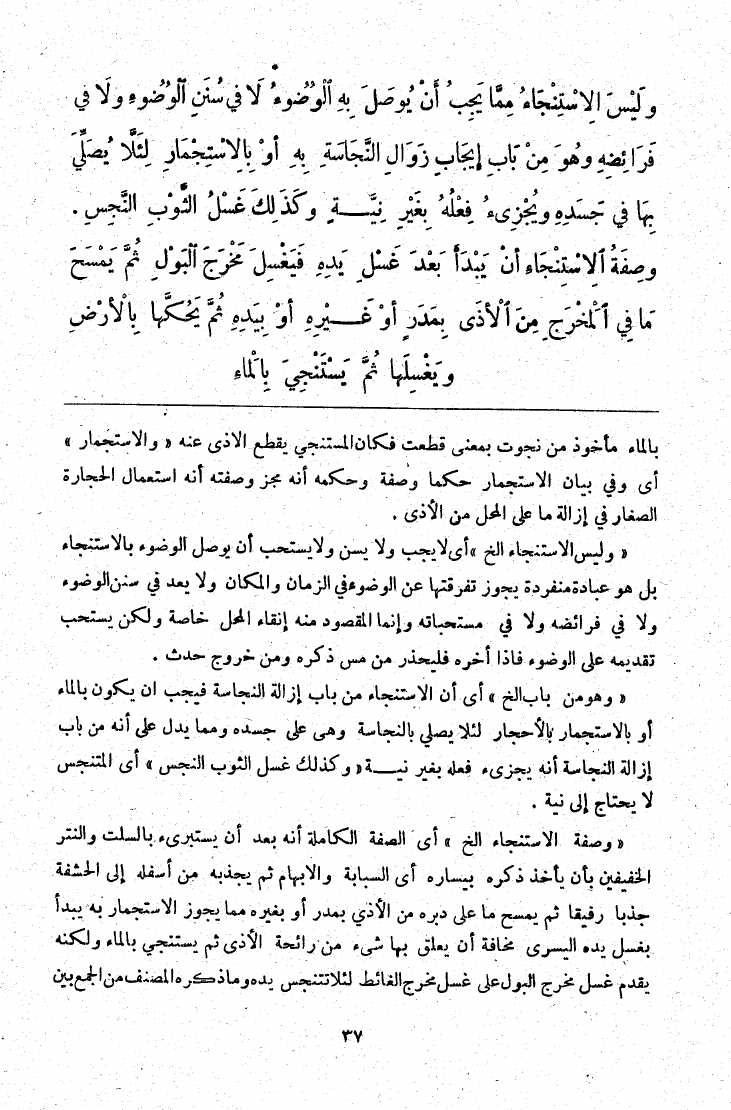 وَلَيْسَ الِاسْتِنْجَاءُ مِمَّا يَجِبُ أَنْ يُوصَلَ بِهِ الْوُضُوءُ لَا فِي سُنَنِ الْوُضُوءِ وَلَا فِي
فَرَائِضِهِ وَهُوَ مِنْ بَابِ إِيجَابِ زَوَالِ النَّجَاسَةِ بِهِ أَوْ بِالِاسْتِجْمَارِ لِئَلَّا يُصَلِّيَ
بِهَا فِي جَسَدِهِ وَيُجْزِىءُ فِعْلُهُ بِغَيْرِ نِيَّــةٍ وَكَذَلِكَ غَسْلُ الثَّوْبِ النَّجِسِ .
وَصِفَةُ الِاسْتِنْجَاءِ أَنْ يَبْدَأَ بَعْدَ غَسْلِ يَدِهِ فَيَغْسِلَ مَخْرَجَ الْبَوْلِ ثُمَّ يَمْسَحَ
مَا فِي الْمَخْرَجِ مِنَ الْأَذَى بِمَدَرٍ أَوْ غَــيْرِهِ أَوْ بِيَدِهِ ثُمَّ يَحُكَّهَا بِالْأَرْضِ
وَيَغْسِلَهَا ثُمَّ يَسْتَنْجِيَ بِالْمَاءِ
بالماء مأخوذ من نجوت بمعنى قطعت فكان المستنجي يقطع الاذى عنه « والاستجمار »
أى وفي بيان الاستجمار حكما وصفة وحكمه أنه مجز وصفته أنه استعمال الحجارة
الصغار في إزالة ما على المحل من الأذى .
« وليس الاستنجاء الخ » أى لا يجب ولا يسن ولا يستحب أن يوصل الوضوء بالاستنجاء
بل هو عبادة منفردة يجوز تفرقتها عن الوضوء في الزمان والمكان ولا يعد في سنن الوضوء
ولا في فرائضه ولا في مستحباته وإنما المقصود منه إنقاء المحل خاصة ولكن يستحب
تقديمه على الوضوء فاذا أخره فليحذر من مس ذكره ومن خروج حدث .
« وهو من باب الخ » أى أن الاستنجاء من باب إزالة النجاسة فيجب ان يكون بالماء
أو بالاستجمار بالأحجار لئلا يصلي بالنجاسة وهى على جسده ومما يدل على أنه من باب
إزالة النجاسة أنه يجزىء فعله بغير نيــة « وكذلك غسل الثوب النجس » أى المتنجس
لا يحتاج إلى نية .
« وصفة الاستنجاء الخ » أى الصفة الكاملة أنه بعد أن يستبرىء بالسلت والنتر
الخفيفين بأن يأخذ ذكره بيساره أى السبابة والابهام ثم يجذبه من أسفله إلى الحشفة
جذبا رفيقا ثم يمسح ما على دبره من الأذي بمدر أو بغيره مما يجوز الاستجمار به يبدأ
بغسل يده اليسرى مخافة أن يعلق بها شىء من رائحة الأذى ثم يستنجي بالماء ولكنه
يقدم غسل مخرج البول على غسل مخرج الغائط لئلا تتنجس يده وما ذكره المصنف من الجمع بين
٣٧